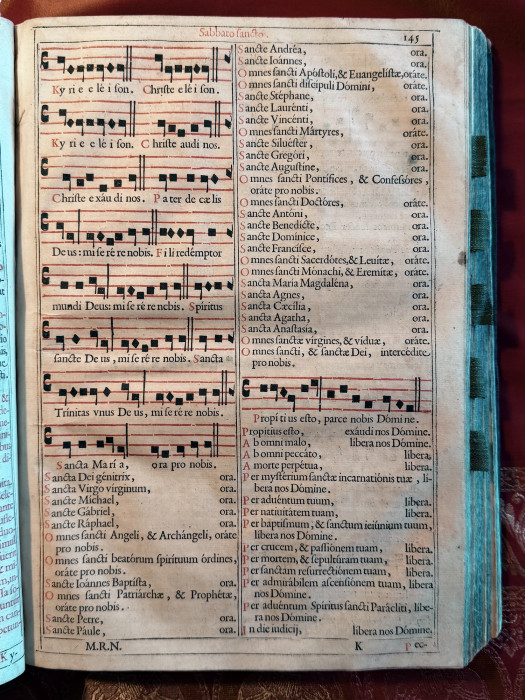 Sabbato sancto.
145
Ky ri e e lé i son. Christe e lé i son.
Ky ri e e lé i son. C hriste audi nos.
Christe exáu di nos. P a ter de cælis
De us: mi se ré re nobis. F i li redémptor
mundi Deus: mi se ré re nobis. Spiritus
sancte De us, mi se ré re nobis. Sancta
Trinitas vnus De us, mi se ré re nobis.
Sancta Ma rí a, ora pro nobis.
Sancta Dei génitrix, ora.
Sancta Virgo virginum, ora.
Sancte Míchael, ora.
Sancte Gábriel, ora.
Sancte Ráphael, ora.
Omnes sancti Angeli, & Archángeli, oráte
pro nobis.
Omnes sancti beatórum spirítuum órdines,
oráte pro nobis.
Sancte Ioánnes Baptista, ora.
Omnes sancti Patriárchæ, & Prophétæ,
oráte pro nobis.
Sancte Petre, ora.
Sancte Páule, ora.
Sancte Andréa, ora.
Sancte Ioánnes, ora.
Omnes sancti Apóstoli, & Euangelistæ, oráte.
Omnes sancti discípuli Dómini, oráte.
Sancte Stéphane, ora.
Sancte Laurénti, ora.
Sancte Vincénti, ora.
Omnes sancti Mártyres, oráte.
Sancte Siluéster, ora.
Sancte Gregóri, ora.
Sancte Augustine, ora.
Omnes sancti Pontífices, & Confessóres,
oráte pro nobis.
Omnes sancti Doctóres, oráte.
Sancte Antóni, ora.
Sancte Benedicte, ora.
Sancte Domínice, ora.
Sancte Francisce, ora.
Omnes sancti Sacerdótes, & Leuítæ, oráte.
Omnes sancti Mónachi, & Eremitæ, oráte.
Sancta María Magdaléna, ora.
Sancta Agnes, ora.
Sancta Cæcília, ora.
Sancta Agatha, ora.
Sancta Anastasia, ora.
Omnes sanctæ vírgines, & víduæ, oráte.
Omnes sancti, & sanctæ Dei, intercédite
pro nobis.
Propíti us esto, parce nobis Dómi ne.
Propítius esto, exáudi nos Dómine.
A b omni malo, líbera nos Dómine.
A b omni peccáto, líbera.
A morte perpétua, líbera.
Per mystérium sanctæ incarnatiónis tuæ, lí-
bera nos Dómine.
Per aduéntum tuum, líbera.
Per natiuitátem tuam, líbera.
Per baptismum, & sanctum ieiúnium tuum,
líbera nos Dómine.
Per crucem, & passiónem tuam, líbera.
Per mortem, & sepultúram tuam, líbera.
Per sanctam resurrectiónem tuam, líbera.
Per admirábilem ascensiónem tuam, líbera
nos Dómine.
Per aduéntum Spíritus sancti Parácliti, líbe-
ra nos Dómine.
In die iudícij, líbera nos Dómine.
M.R.N. K Pec-